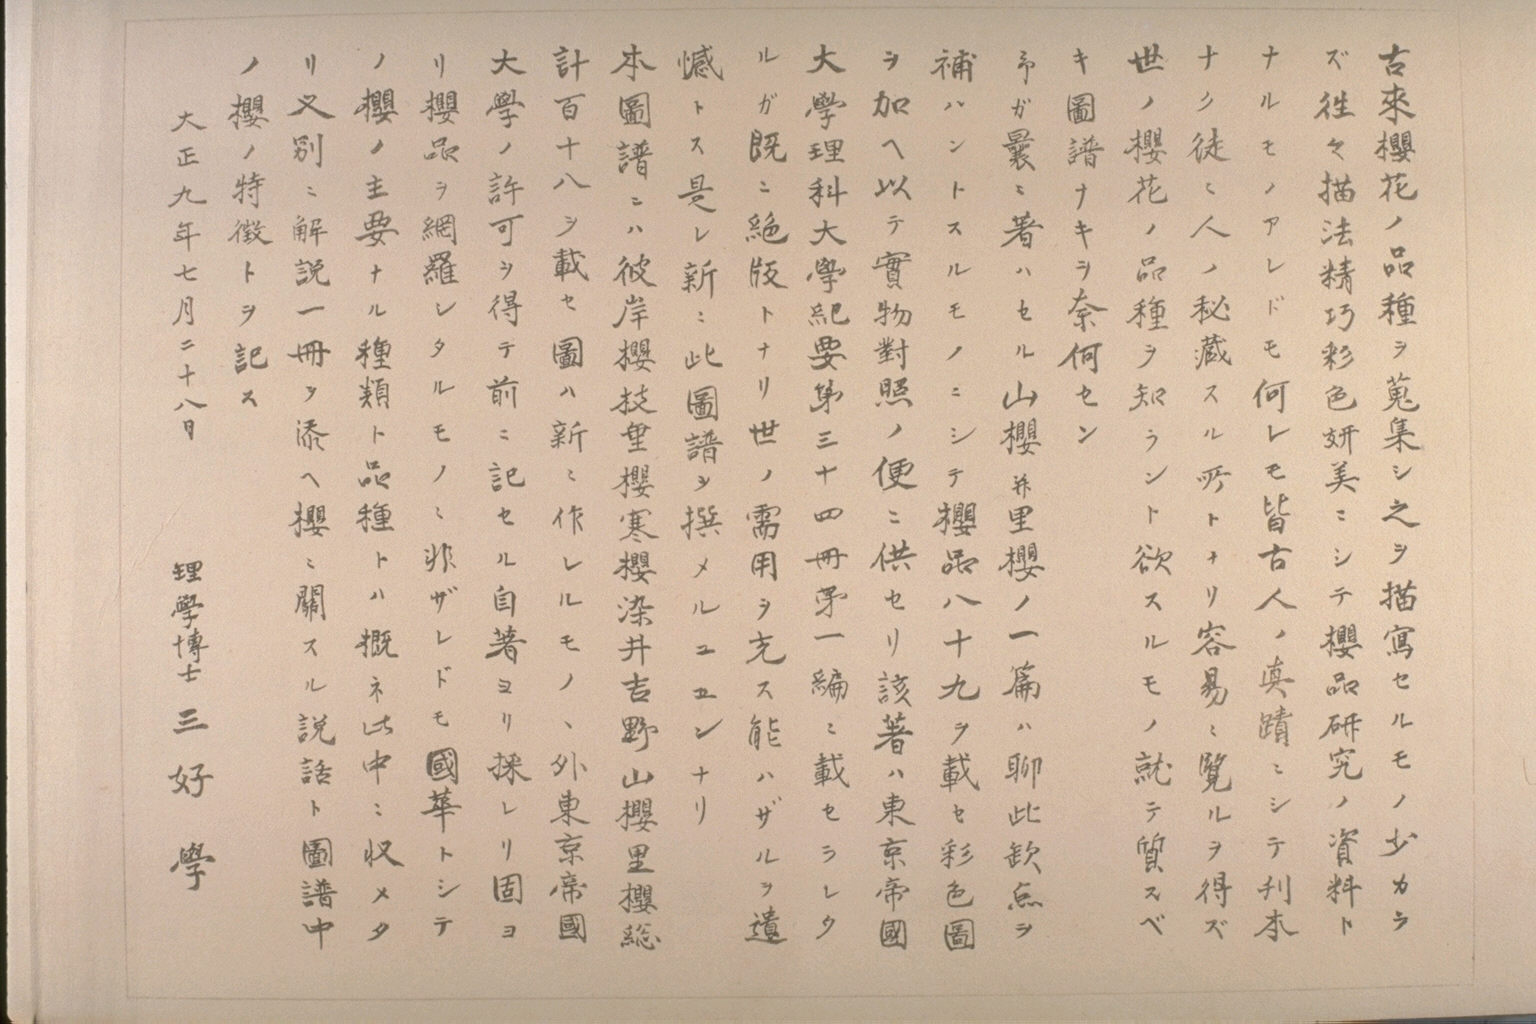 古來櫻花ノ品種ヲ蒐集シ之ヲ描寫セルモノ少カラ
ズ徃々描法精巧彩色妍美ニシテ櫻品研究ノ資料ト
ナルモノアレドモ何レモ皆古人ノ眞蹟ニシテ刋本
ナク徒ニ人ノ秘藏スル所トナリ容易ニ覽ルヲ得ズ
世ノ櫻花ノ品種ヲ知ラント欲スルモノ就テ質スベ
キ圖譜ナキヲ奈何セン
予ガ曩ニ著ハセル山櫻并里櫻ノ一篇ハ聊此欽点ヲ
補ハントスルモノニシテ櫻品八十九ヲ載セ彩色圖
ヲ加ヘ以テ實物對照ノ便ニ供セリ該著ハ東京帝國
大學理科大學紀要第三十四冊第一編ニ載セラレタ
ルガ既ニ絶版トナリ世ノ需用ヲ充ス能ハザルヲ遺
憾トス是レ新ニ此圖譜ヲ撰メルユエンナリ
本圖譜ニハ彼岸櫻技垂櫻寒櫻染井吉野山櫻里櫻総
計百十八ヲ載セ圖ハ新ニ作レルモノヽ外東京帝國
大學ノ許可ヲ得テ前ニ記セル自著ヨリ採レリ固ヨ
リ櫻品ヲ網羅シタルモノニ非ザレドモ國華トシテ
ノ櫻ノ主要ナル種類ト品種トハ概ネ此中ニ収メタ
リ又別ニ解説一冊ヲ添ヘ櫻ニ關スル説話ト圖譜中
ノ櫻ノ特徴トヲ記ス
大正九年七月二十八日
理學博士 三好 學